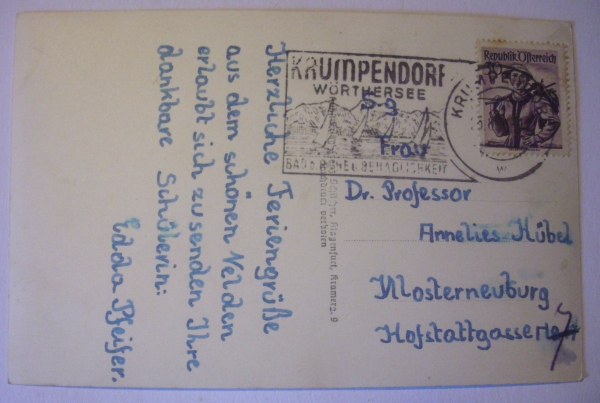 Herzliche Feriengrüße
aus dem schönen Velden
erlaubt sich zu senden Ihre
dankbare Schülerin:
Edda Pfeifer.
KRUMPENDORF
WÖRTHERSEE
BAD RUHE u. BEHAGLICHKEIT
Republik Österreich
KRUMPENDORF
Klagenfurt, Kramerg. 9
verboten
Frau
Dr. Professor
Annelies Hübel
Klosterneuburg
Hofstattgasserl